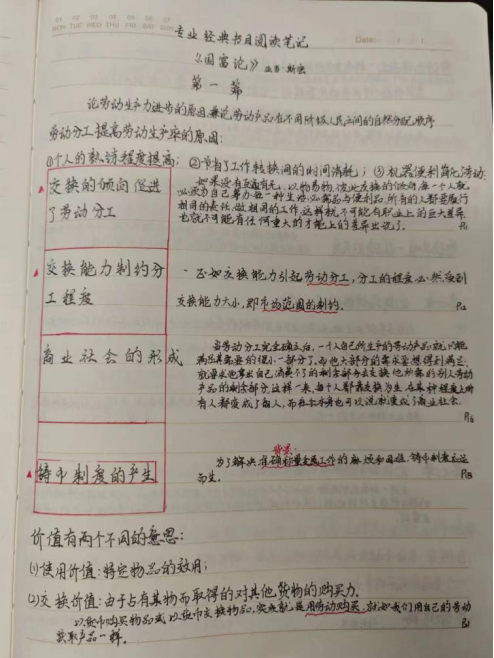 01 02 03 04 05 06 07
MON TUE WED THU FRI SAT SUN
Date: / /
专业经典书目阅读笔记
《国富论》亚当·斯密
第一篇
论劳动生产力进步的原因,兼论劳动产品在不同阶级人民之间的自然分配顺序
劳动分工提高劳动生产率的原因:
①个人的熟练程度提高; ②节省了工作转换间的时间消耗; ③机器便利简化劳动
交换的倾向促进
了劳动分工
如果没有互通有无、以物易物、彼此交换的倾向,每一个人就
必须为自己筹办每一种生活必需品与便利品,所有的人都要履行
相同的责任,做相同的工作,这样就不可能有职业上的巨大差异
也就不可能有任何重大的才能上的差异出现了。
交换能力制约分
工程度
正如交换能力引起劳动分工,分工的程度必然受到
交换能力大小,即市场范围的制约。
商业社会的形成
当劳动分工完全确立后,一个人自己所生产的劳动产品就只能
满足其需要的很小一部分了,而他大部分的需求要想得到满足,
就要求他拿出自己消费不了的剩余部分去交换他所需的别人劳动
产品的剩余部分,这样一来,每个人都靠交换为生,在某种程度上所
有人都变成了商人,而社会本身也可以说渐渐成了商业社会。
铸币制度的产生
背景:
为了解决准确称量金属工作的麻烦和困难,铸币制度应运
而生。
价值有两个不同的意思:
(1)使用价值:特定物品的效用;
(2)交换价值:由于占有某物而取得的对其他货物的购买力.
以货币购买物品或以货币交换物品,实质就是用劳动购买,就如我们用自己的劳动
获取产品一样。